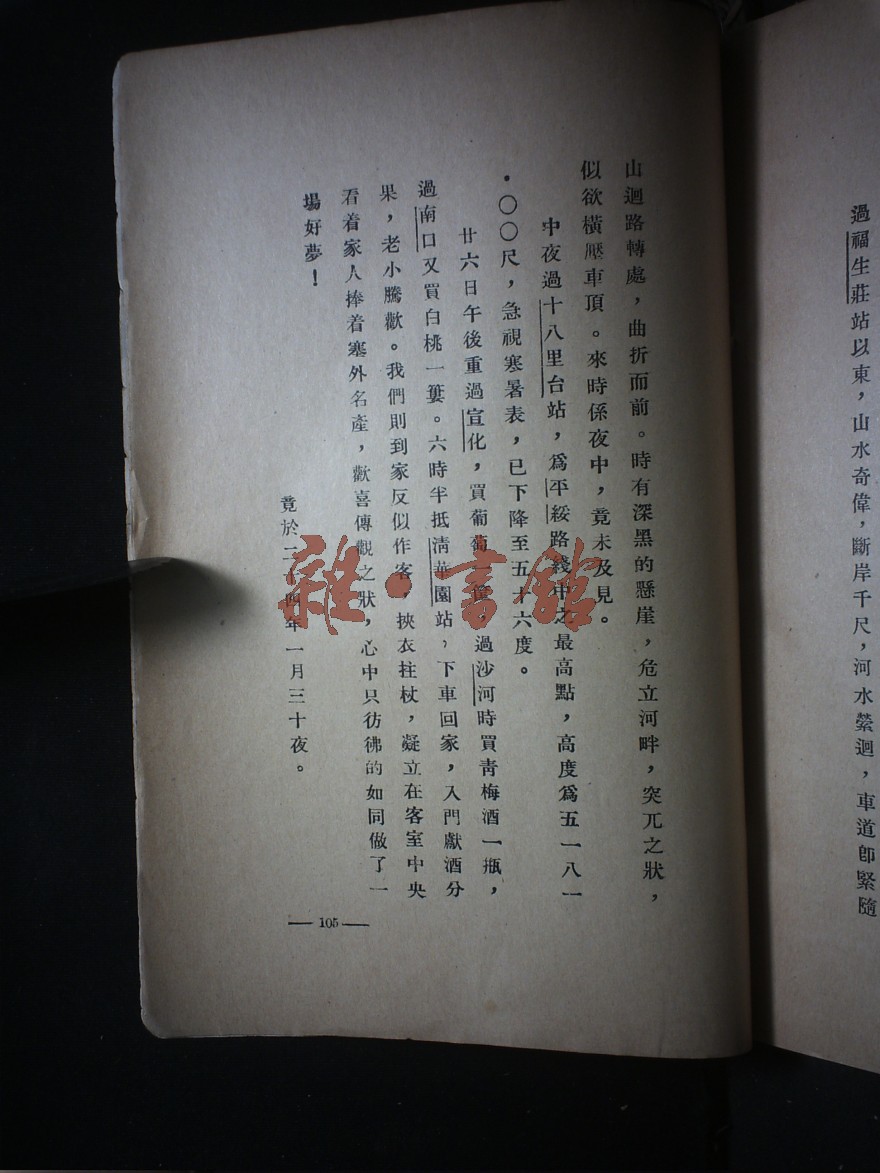 過福生莊站以東，山水奇偉，斷岸千尺，河水縈迴，車道卽緊隨
山迴路轉處，曲折而前。時有深黑的懸崖，危立河畔，突兀之狀，
似欲橫壓車頂。來時係夜中，竟未及見。
中夜過十八里台站，爲平綏路綫中之最高點，高度爲五一八一
．〇〇尺，急視寒暑表，已下降至五十六度。
廿六日午後重過宣化，買葡萄一簍，過沙河時買靑梅酒一瓶，
過南口又買白桃一簍。六時半抵淸華園站，下車回家，入門獻酒分
果，老小騰歡。我們則到家反似作客 挾衣拄杖，凝立在客室中央
看着家人捧着塞外名產，歡喜傳觀之狀，心中只彷彿的如同做了一
場好夢！
竟於二十四年一月三十夜。
— 105 —
雜·書館